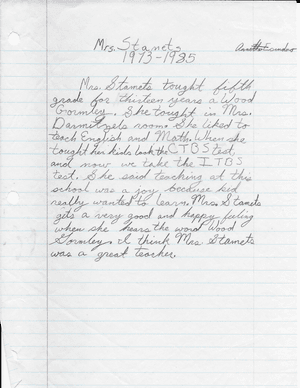 Mrs. Stamets
1973-1985
Mrs. Stamets tought fifth
grade for thirteen years a Wood
Gormley. She tought in Mrs.
room. She liked to
teach English and Math. When she
tought her kids took the CTBS test,
and now we take the ITBS
test. She said teaching at this
school was a joy because kid
really wanted to learn. Mrs. Stamets
gets a very good and happy feling
when she hears the word Wood
Gormley. I think Mrs Stamets
was a great teacher.